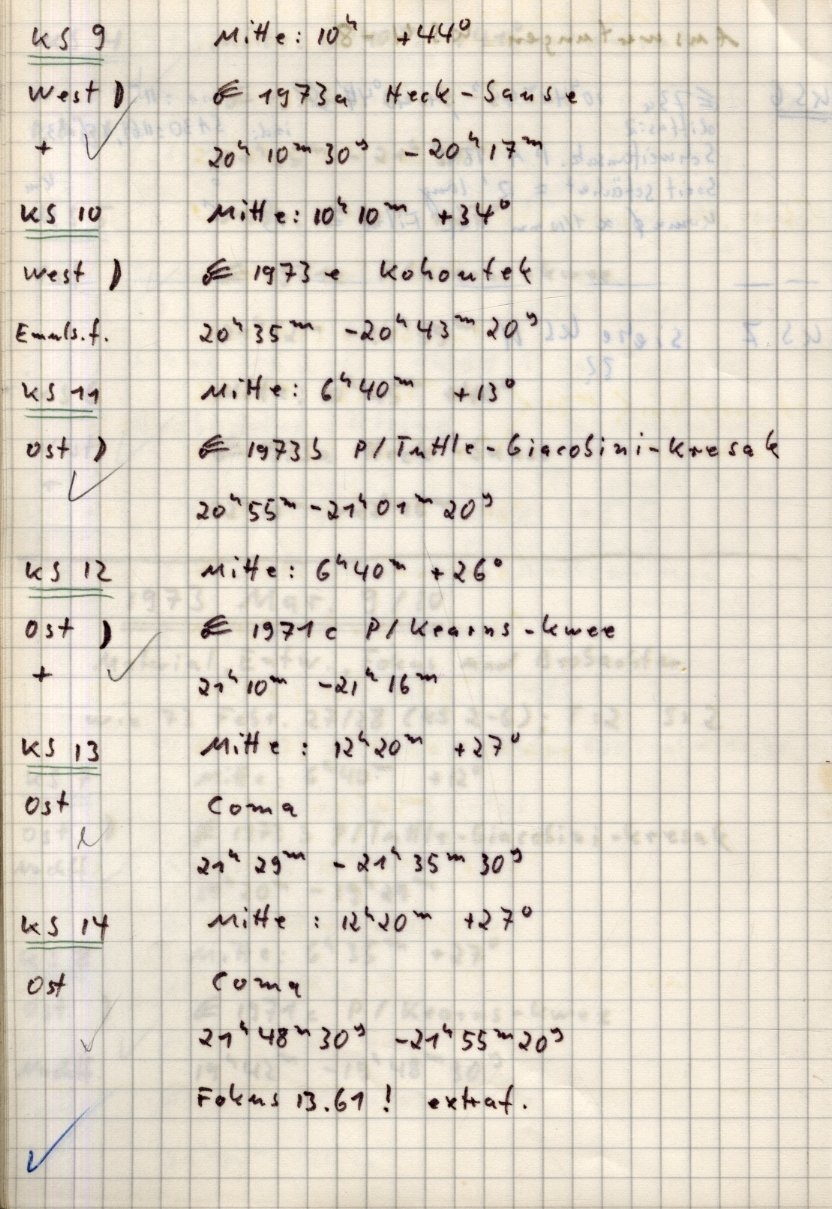 KS 9 Mitte: 10ʰ +44°
West ) ☄ 1973a Heck-Sause
+ ✓ 20ʰ 10ᵐ 30ˢ - 20ʰ 17ᵐ
KS 10 Mitte: 10ʰ 10ᵐ +34°
West ) ☄ 1973e Kohoutek
Emuls.f. 20ʰ 35ᵐ - 20ʰ 43ᵐ 20ˢ
KS 11 Mitte: 6ʰ 40ᵐ +13°
Ost ) ☄ 1973b P/Tuttle-Giacobini-Kresak
✓ 20ʰ 55ᵐ - 21ʰ 01ᵐ 20ˢ
KS 12 Mitte: 6ʰ 40ᵐ +26°
Ost ) ☄ 1971c P/Kearns-Kwee
+ ✓ 21ʰ 10ᵐ - 21ʰ 16ᵐ
KS 13 Mitte: 12ʰ 20ᵐ +27°
Ost Coma
✓ 21ʰ 29ᵐ - 21ʰ 35ᵐ 30ˢ
KS 14 Mitte: 12ʰ 20ᵐ +27°
Ost Coma
✓ 21ʰ 48ᵐ 30ˢ - 21ʰ 55ᵐ 20ˢ
Fokus 13.61! extraf.
✓